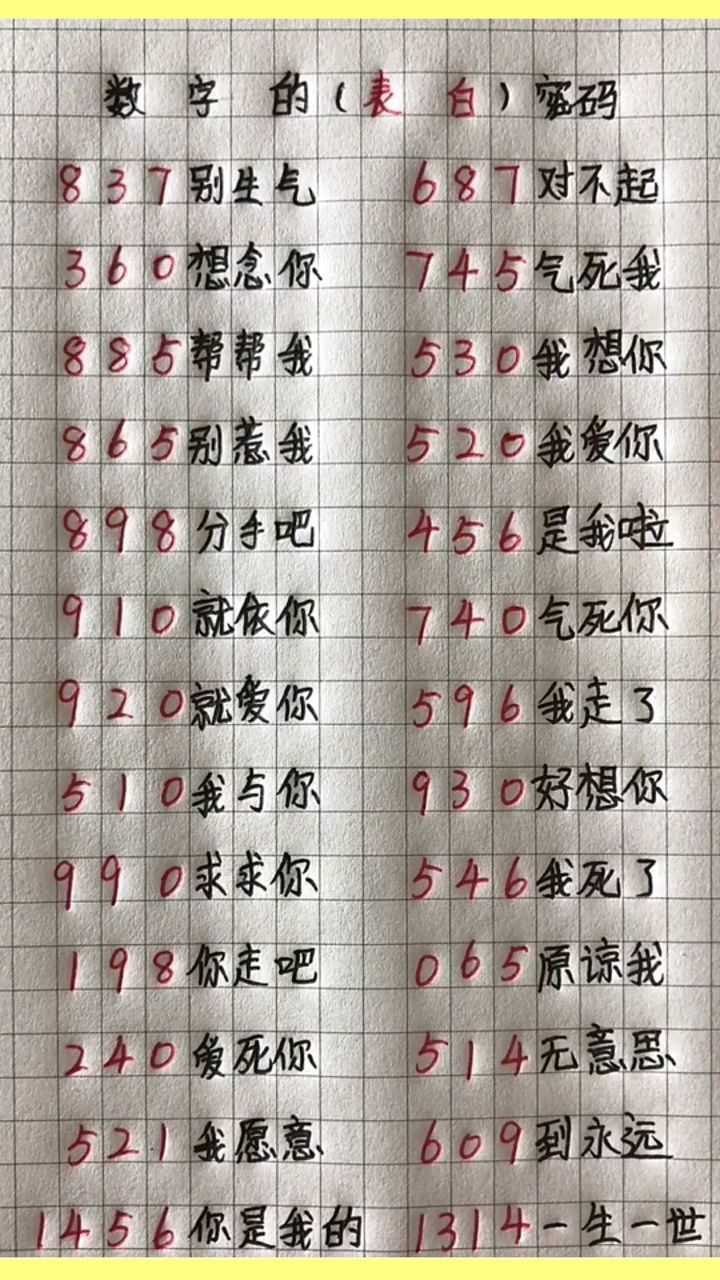 数字的(表白)密码
837别生气 687对不起
360想念你 745气死我
885帮帮我 530我想你
865别惹我 520我爱你
898分手吧 456是我啦
910就依你 740气死你
920就爱你 596我走了
510我与你 930好想你
990求求你 546我死了
198你走吧 065原谅我
240爱死你 514无意思
521我愿意 609到永远
1456你是我的 1314一生一世